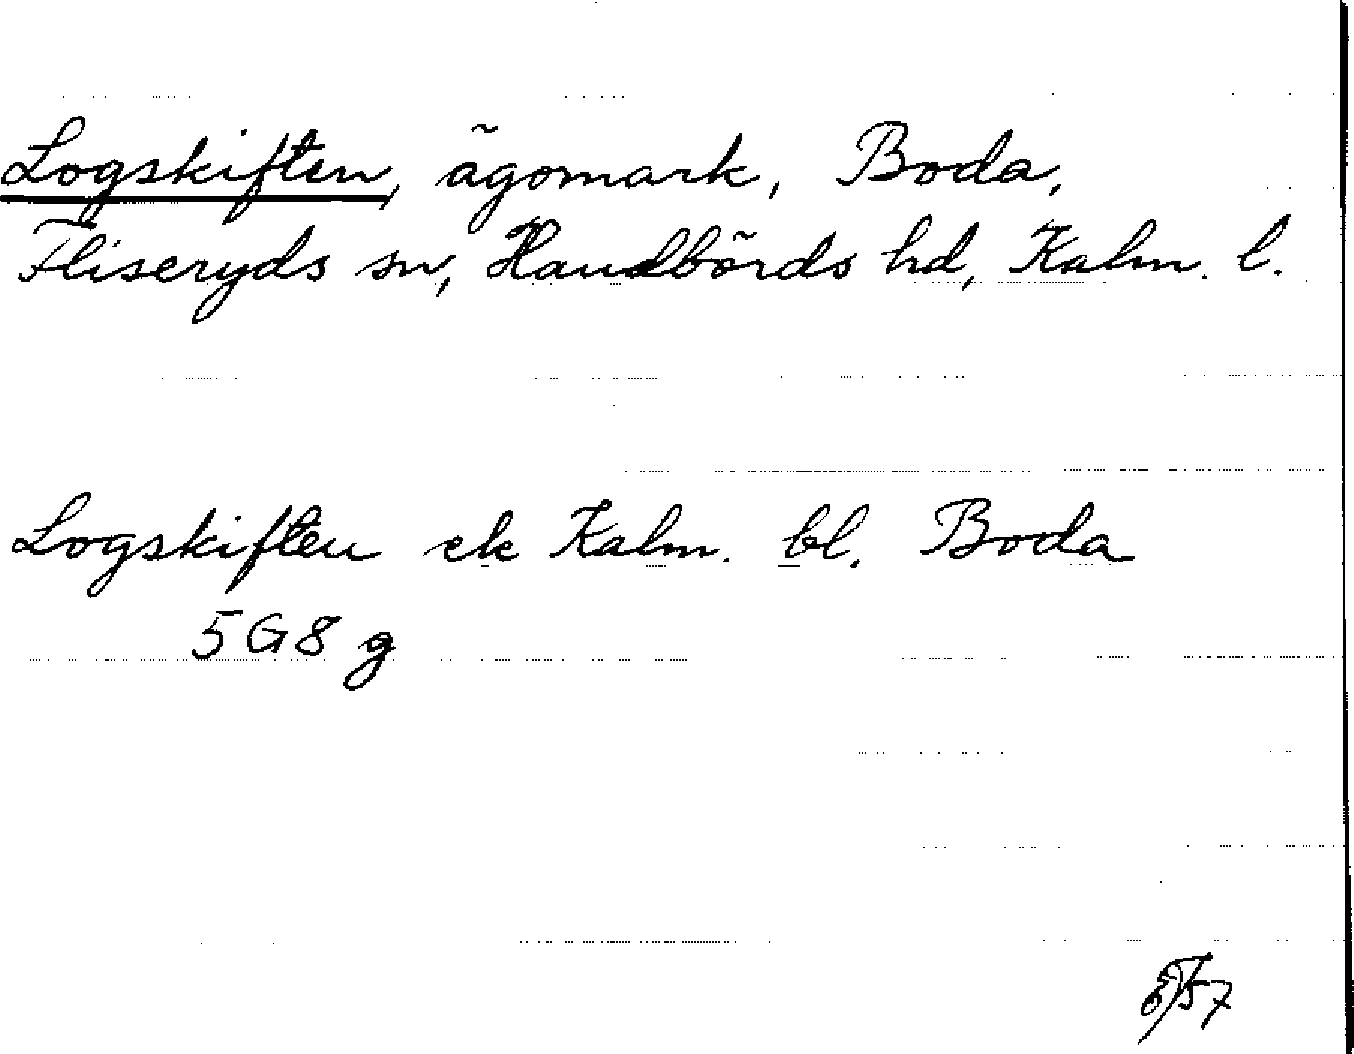 Logskiften, ägomark, Boda,
Fliseryds sn, Handbörds hd, Kalm. l.
Logskiften ek Kalm. bl. Boda
5G8 g